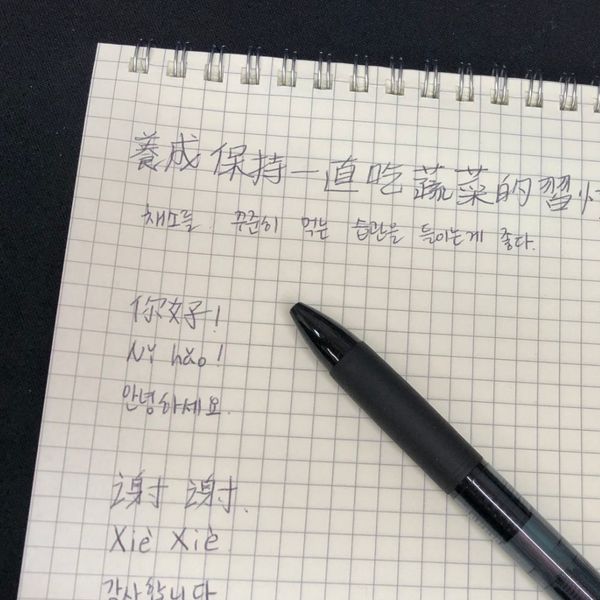 養成保持一直吃蔬菜的習
채소를 꾸준히 먹는 습관을 들이는게 좋다.
你好!
Nǐ hǎo!
안녕하세요.
谢谢.
Xiè Xiè
감사합니다